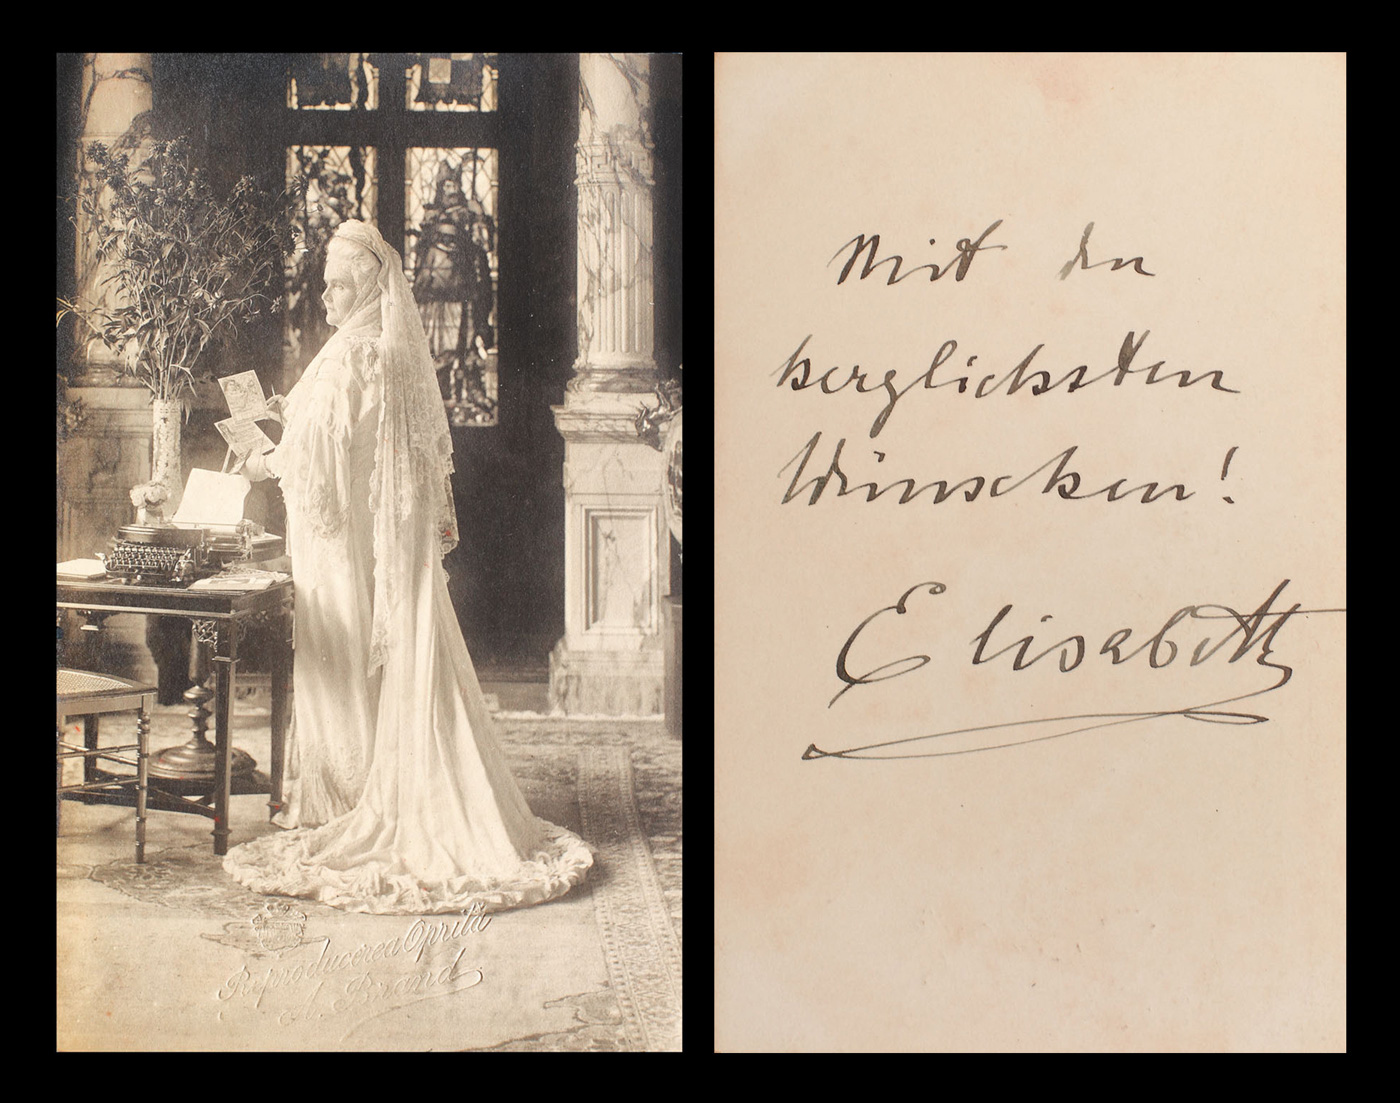 Reproducerea Oprită
A. Brand
Mit den
herzlichsten
Wünschen!
Elisabeth